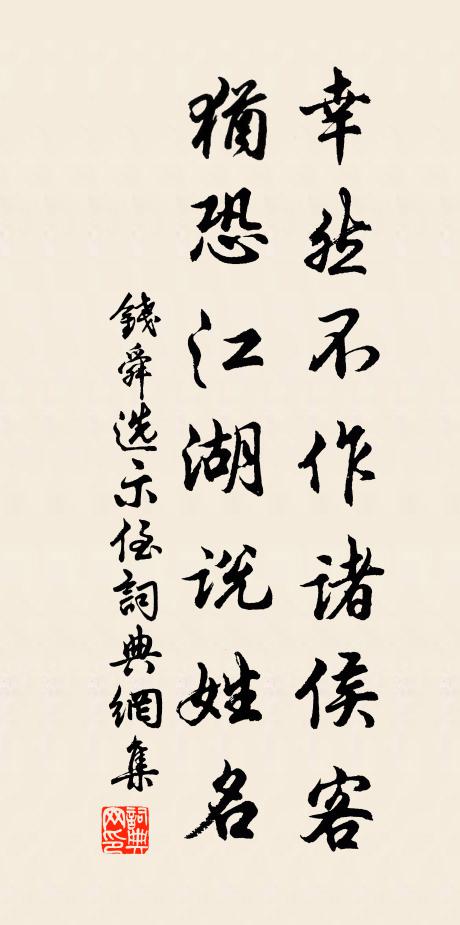 幸然不作諸侯客
猶恐江湖说姓名
錢舜选示侄詞典網集
詞典网印